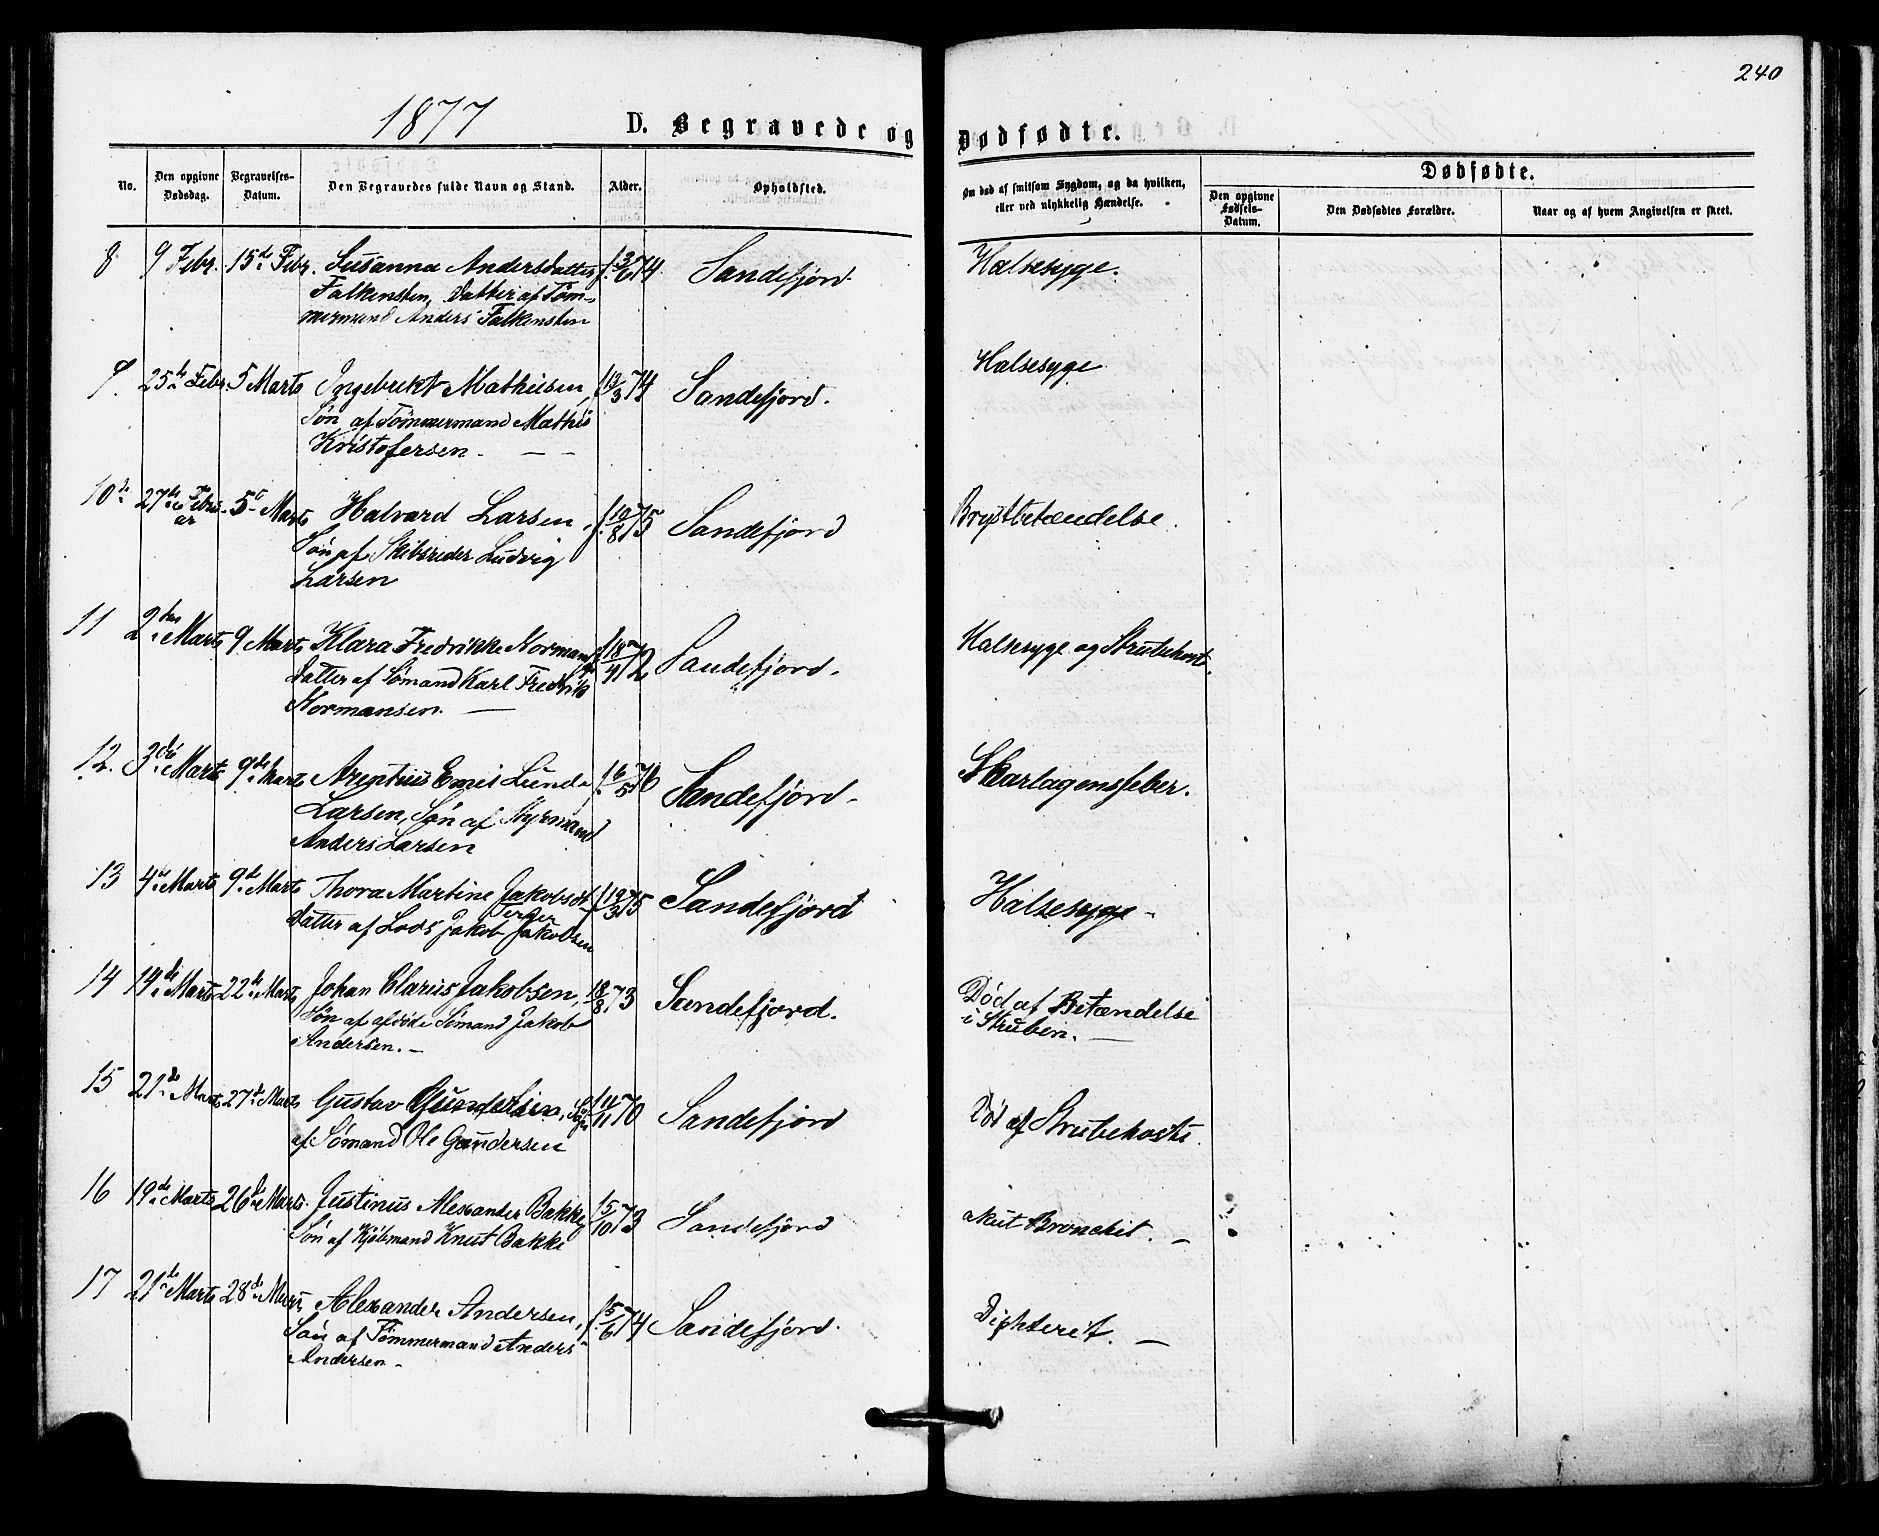 240
1877
D. Begravede og Dødfødte.
No. Den opgivne Dødsdag. Begravelses-Datum. Den Begravedes fulde Navn og Stand. Alder. Opholdsted. Om død af smitsom Sygdom, og da hvilken, eller ved ulykkelig Hændelse. Dødfødte.
Den opgivne Fødsels-Datum. Den Dødfødtes Forældre. Naar og af hvem Angivelsen er skeet.
8 9 Febr. 15de Febr. Susanna Andersdatter f. 3/6 74 Sandefjord. Halsesyge.
Falkensten, Datter af Tøm-
mermand Anders Falkensten
9. 25de Febr. 5 Marts Ingebrekt Mathisen, f 19/3 74 Sandefjord. Halsesyge
Søn af Tømmermand Mathis
Kristofersen -
10de 27de Febru- 5te Marts Halvard Larsen, f. 10/8 75 Sandefjord Brystbetændelse.
ar Søn af Skibsreder Ludvig
Larsen
11 2den Marts 9 Marts Klara Fredrikke Normans f. 18/4 72 Sandefjord. Halsesyge og Strubehoste.
Datter af Sømand Karl Fredrik
Normansen.
12. 3die Marts 9de Marts Arentius Emil Lunde f. 6/5 76 Sandefjord. Skarlagensfeber.
Larsen, Søn af Styrmand
Anders Larsen
13 4de Marts 9de Marts Thora Martine Jakobsdt f. 19/3 75 Sandefjord Halsesyge.
Terger
Datter af Lods Jakob Jakobsen
14 14de Marts 22de Marts Johan Clarius Jakobsen, 18/8 73 Sandefjord. Død af Betændelse
Søn af afdøde Sømand Jakob i Struben.
Andersen.
15 21de Marts 27de Marts Gustav Gundersen, Søn f 11/11 70 Sandefjord Død af Strubehoste.
af Sømand Ole Gundersen
16 19de Marts 26de Marts. Justinus Alexander Bakke f 5/10 73 Sandefjord akut Bronchit.
Søn af Kjøbmand Knut Bakke
17 21de Marts 28de Marts Alexander Andersen, f. 5/6 74 Sandefjord. Diphterit.
Søn af Tømmermand Anders
Andersen